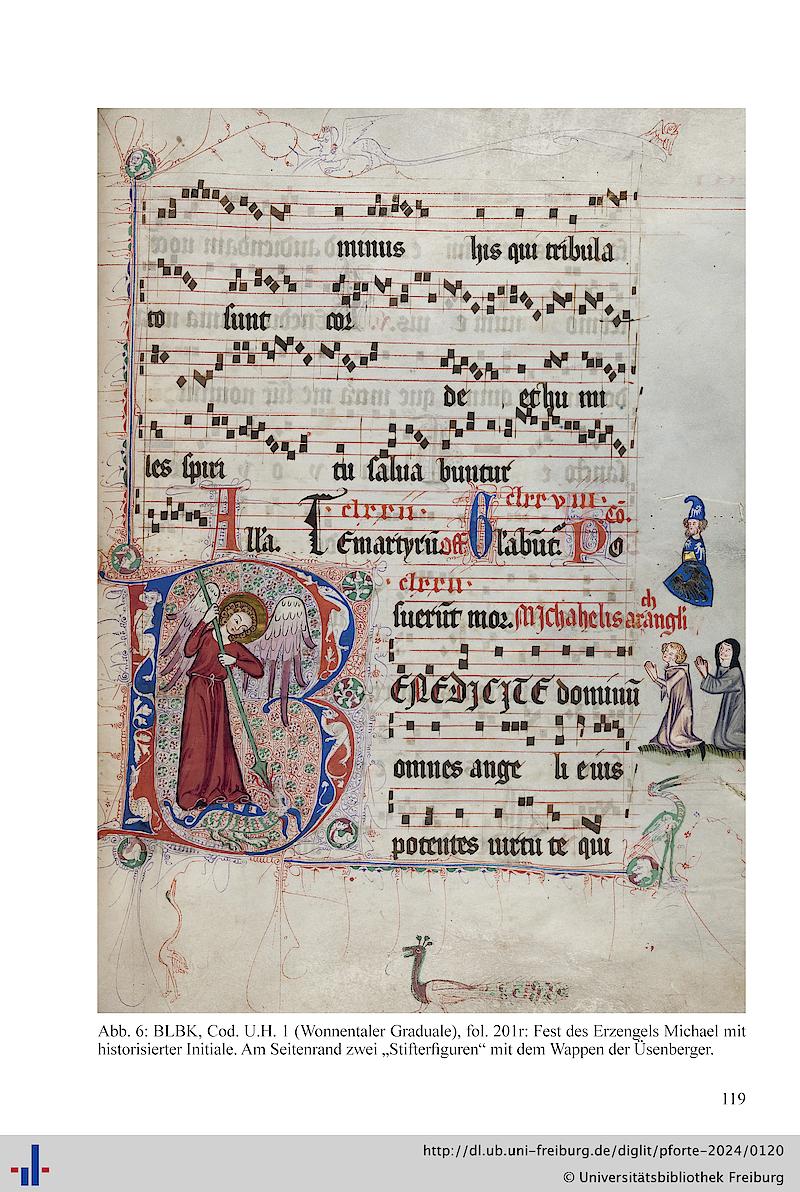 minus his qui tribula
to sunt cor
de et hu mi
les spiri tu salua buntur
clxxii. clxxviii. cō.
Alla. Temartyrū off Glabūt. Po
clxxii.
fuerūt mor. Michahelis archāngli
BENEDICITE dominū
omnes ange li eius
potentes uirtu te qui
Abb. 6: BLBK, Cod. U.H. 1 (Wonnentaler Graduale), fol. 201r: Fest des Erzengels Michael mit
historisierter Initiale. Am Seitenrand zwei „Stifterfiguren“ mit dem Wappen der Üsenberger.
119
http://dl.ub.uni-freiburg.de/diglit/pforte-2024/0120
© Universitätsbibliothek Freiburg